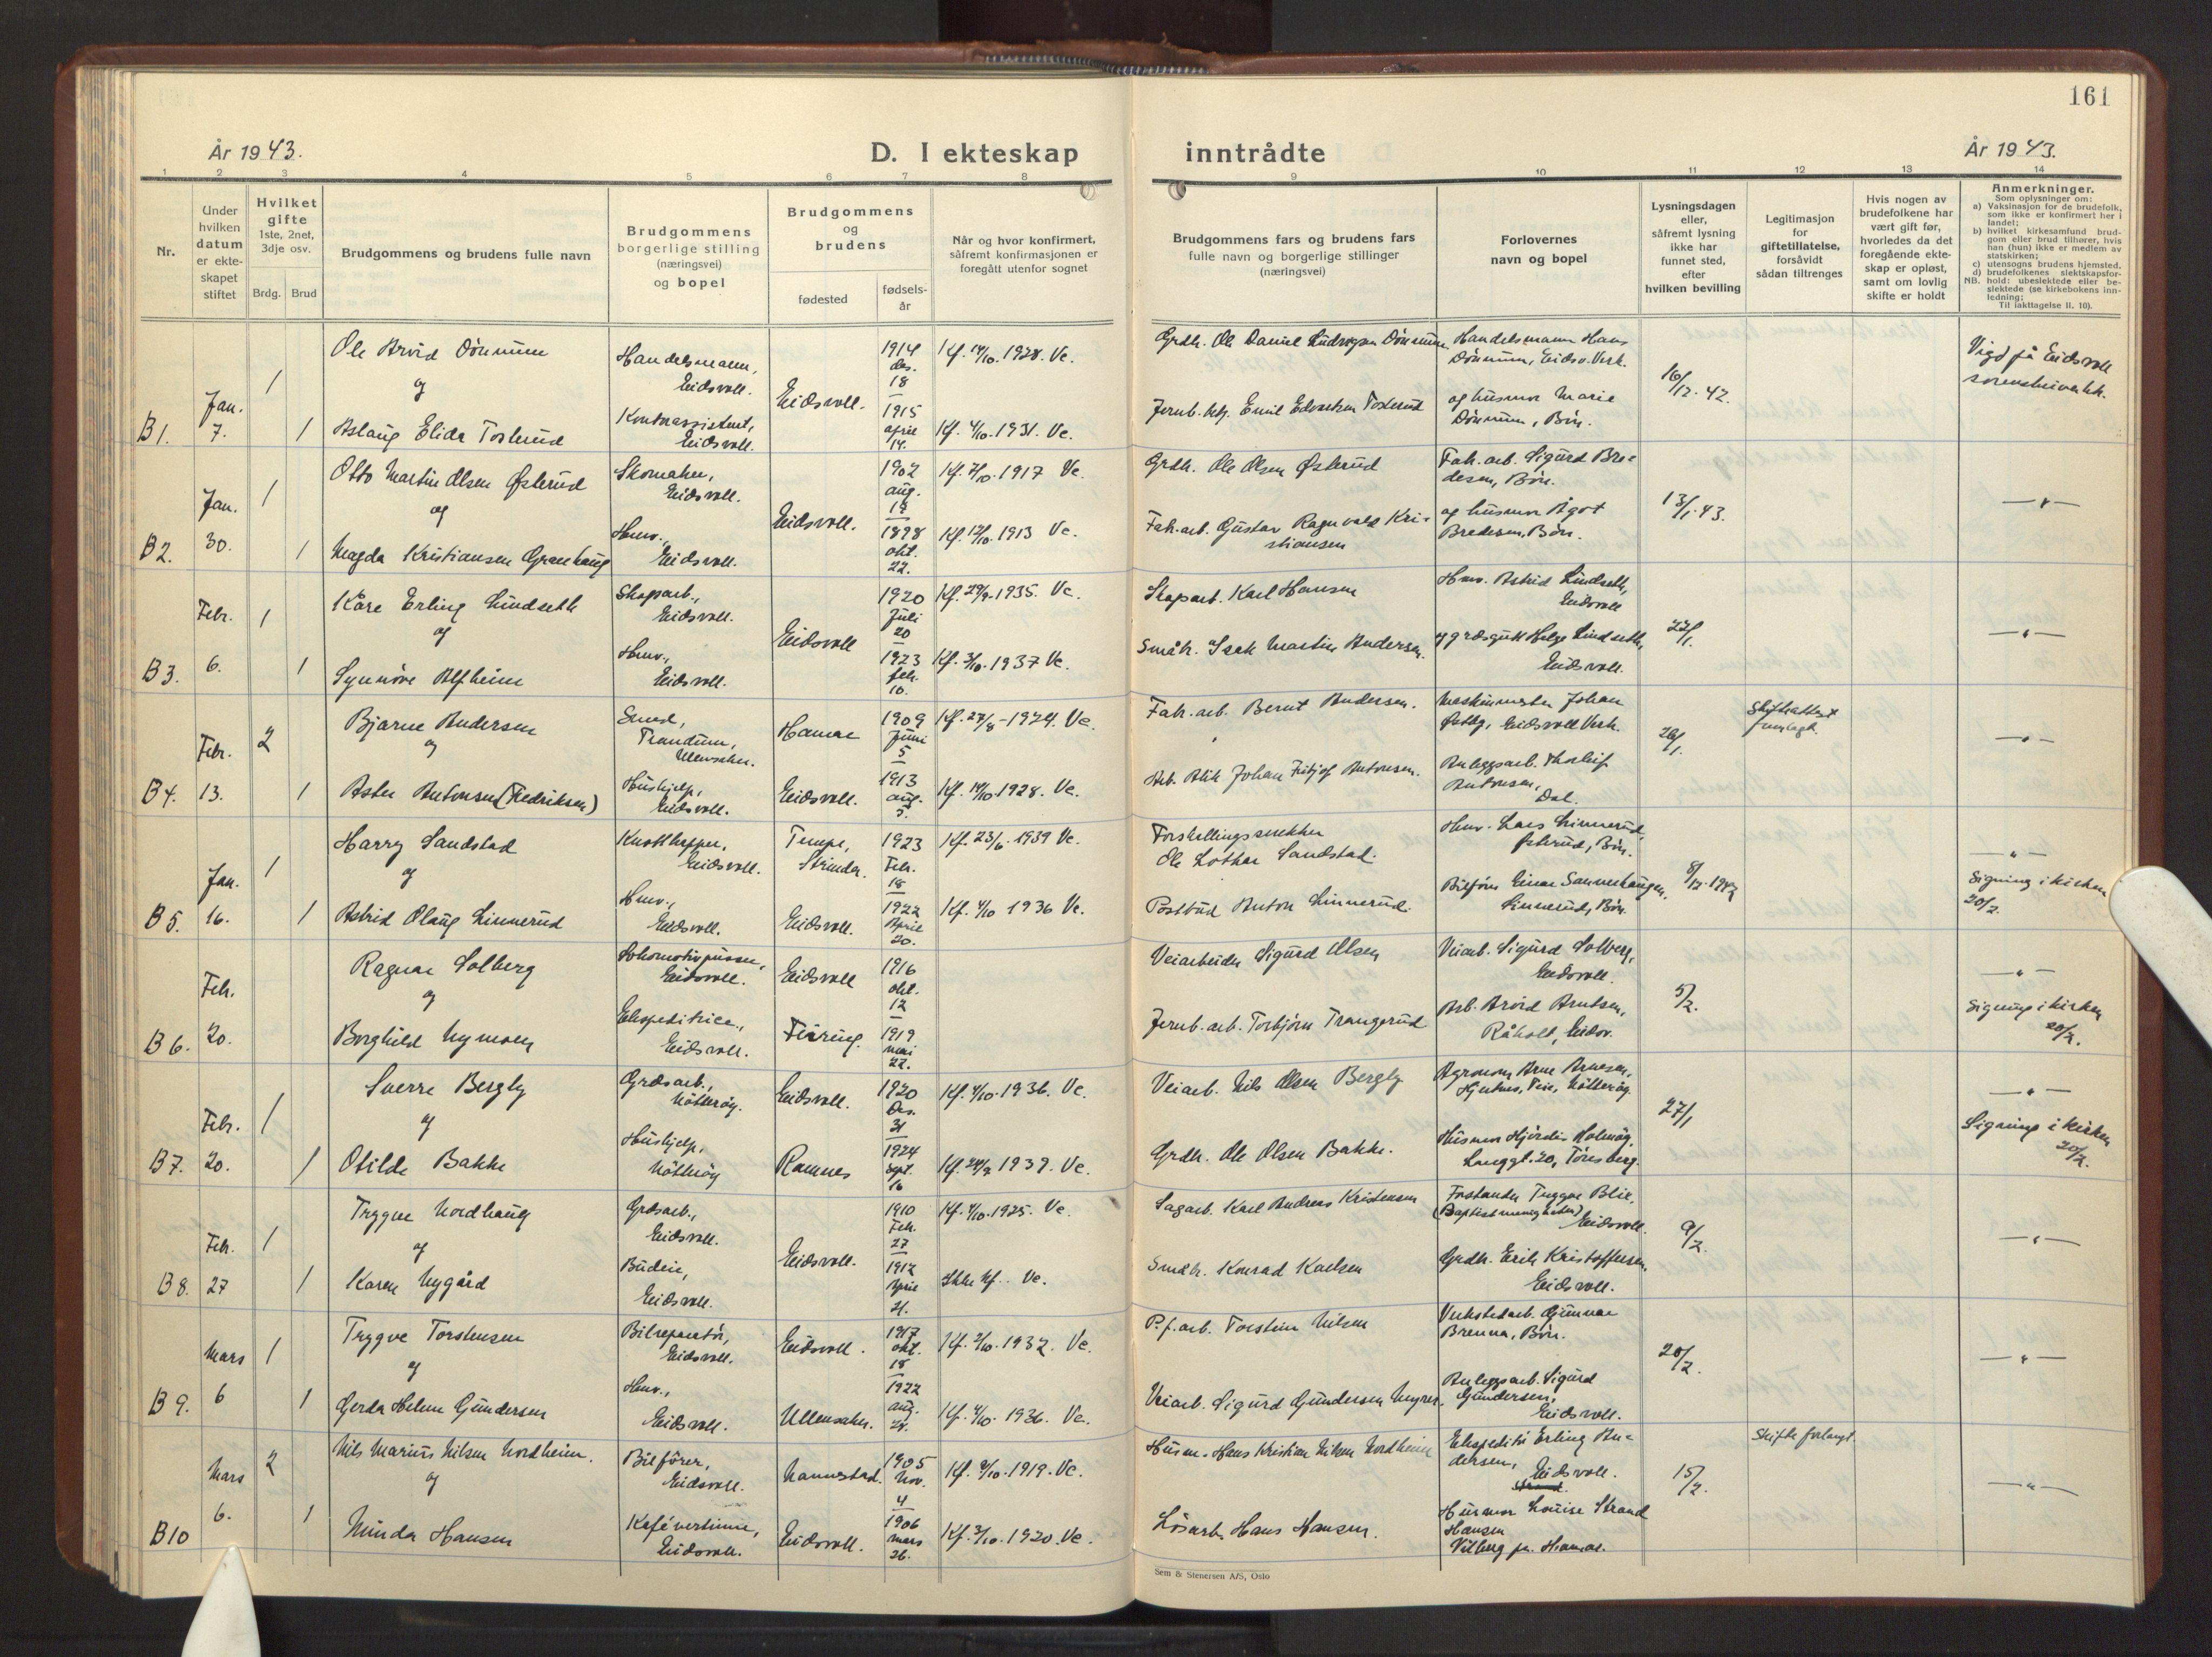 161
År 1943.
D. I ekteskap
inntrådte
År 1943.
1 2 3 4 5 6 7 8 9 10 11 12 13 14
Nr.
Under
hvilken
datum
er ekte-
skapet
stiftet
Hvilket
gifte
1ste, 2net,
3dje osv.
Brdg. Brud
Brudgommens og brudens fulle navn
Brudgommens
borgerlige stilling
(næringsvei)
og bopel
Brudgommens
og
brudens
fødested
fødsels-
år
Når og hvor konfirmert,
såfremt konfirmasjonen er
foregått utenfor sognet
Brudgommens fars og brudens fars
fulle navn og borgerlige stillinger
(næringsvei)
Forlovernes
navn og bopel
Lysningsdagen
eller,
såfremt lysning
ikke har
funnet sted,
efter
hvilken bevilling
Legitimasjon
for
giftetillatelse,
forsåvidt
sådan tiltrenges
Hvis nogen av
brudefolkene har
vært gift før,
hvorledes da det
foregående ekte-
skap er opløst,
samt om lovlig
skifte er holdt
Anmerkninger.
Som oplysninger om:
a) Vaksinasjon for de brudefolk,
som ikke er konfirmert her i
landet;
b) hvilket kirkesamfund brud-
gom eller brud tilhører, hvis
han (hun) ikke er medlem av
statskirken;
c) utensogns brudens hjemsted.
d) brudefolkenes slektskapsfor-
NB. hold: ubeslektede eller be-
slektede (se kirkebokens inn-
ledning;
Til iakttagelse II. 10).
B1.
Jan.
7.
1
1
Ole Arvid Dønnum
og
Aslaug Elida Tosterud
Handelsmann,
Eidsvoll.
Kontorassistent,
Eidsvoll.
Eidsvoll.
1914
des.
18
1915
april
14.
Kf. 14/10. 1928. Ve.
Kf. 4/10. 1931. Ve.
Grdb. Ole Daniel Ludvigsen Dønnum
Jernb. betj. Emil Edvartsen Tosterud
Handelsmann Hans
Dønnum, Eidsv. Verk.
og husmor Marie
Dønnum, Bøn.
16/12. 42.
Vigd på Eidsvoll
sorenskriverktr.
B2.
Jan.
30.
1
1
Otto Martin Olsen Østerud
og
Magda Kristiansen Granhaug
Skomaker,
Eidsvoll.
Husv.,
Eidsvoll.
Eidsvoll.
1902
aug.
19
1898
okt.
22.
Kf. 7/10. 1917 Ve.
Kf. 12/10. 1913 Ve.
Grdb. Ole Olsen Østerud
Fab. arb. Gustav Ragnvald Kri-
stiansen
Fab. arb. Sigurd Bre-
desen, Bøn.
og husmor Ågot
Bredesen, Bøn.
13/1. 43.
— " —
B3.
Febr.
6.
1
1
Kåre Erling Lindseth
og
Synnöve Alfheim
Skogsarb.,
Eidsvoll.
Husv.,
Eidsvoll.
Eidsvoll
1920
Juli
20
1923
feb.
10.
Kf. 29/9. 1935. Ve.
Kf. 3/10. 1937 Ve.
Skogsarb. Karl Hansen
Småbr. Isak Martin Andersen.
Husv. Astrid Lindseth,
Eidsvoll
og grdsgutt Helge Lindseth,
Eidsvoll.
22/1.
— " —
B4.
Febr.
13.
2
1
Bjarne Andersen
og
Aster Antonsen (Fredriksen)
Smed,
Trandum,
Ullensaker.
Hushjelp,
Eidsvoll.
Hamar
Eidsvoll.
1909
Juni
5
1913
aug.
3.
Kf. 27/8 - 1924. Ve.
Kf. 14/10. 1928. Ve.
Fab. arb. Bernt Andersen.
Arb. Alik Johan Fritjof Antonsen.
Maskinmester Johan
Østby, Eidsvoll Verk.
Anleggsarb. Thorleif
Antonsen,
Dal.
26/1.
Skifteattest
fremlagt.
— " —
B5.
Jan.
16.
1
1
Harry Sandstad
og
Astrid Olaug Linnerud
Knottkapper,
Eidsvoll.
Husv.,
Eidsvoll.
Tempe,
Strinda.
Eidsvoll.
1923
Feb.
18
1922
April
20.
Kf. 23/6. 1939 Ve.
Kf. 4/10 1936 Ve.
Forskallingssnekker
Ole Lothar Sandstad.
Postbud Anton Linnerud.
Husv. Lars Linnerud,
Østerud, Bøn.
Bilfører Einar Sannerhaugen,
Linnerud, Bøn.
8/12. 1942
— " —
Signing i kirken
20/2.
B6.
Feb.
20.
Ragnar Solberg
og
Borghild Nymoen
Lokomotivpusser,
Eidsvoll.
Ekspeditrice,
Eidsvoll.
Eidsvoll
Feiring.
1916
okt.
12
1919
mai
22.
Veiarbeider Sigurd Olsen
Jernb. arb. Torbjørn Trangerud
Veiarb. Sigurd Solberg,
Eidsvoll.
Arb. Arvid Arntsen,
Råholt, Eidsv.
5/2.
— " —
Signing i kirken
20/2.
B7.
Febr.
20.
1
1
Sverre Bergly
og
Otilde Bakke
Grdsarb.,
Nötterøy.
Hushjelp,
Nötterøy
Eidsvoll.
Ramnes
1920
Des.
31
1924
Sept.
16
Kf. 4/10. 1936. Ve.
Kf. 24/9. 1939. Ve.
Veiarb. Nils Olsen Bergly
Grdb. Ole Olsen Bakke.
Agronom Arne Arnesen,
Hjertnes, Teie, Nötterøy.
Husmor Hjördis Holmøy,
Langgt. 20, Tönsberg.
27/1
— " —
Signing i kirken
20/2.
B8.
Feb.
27
1
1
Trygve Nordhaug
og
Karen Nygård
Grdsarb.,
Eidsvoll.
Budeie,
Eidsvoll.
Eidsvoll.
1910
Feb.
27
1912
April
21.
Kf. 4/10. 1925. Ve.
Ikke kf. Ve.
Sagarb. Karl Andreas Kristensen
Småbr. Konrad Karlsen
Forstander Trygve Blix,
(Baptistmenigheten)
Eidsvoll.
Grdb. Erik Kristoffersen,
Eidsvoll.
9/2.
— " —
B9.
Mars
6
1
1
Trygve Torstensen
og
Gerda Helene Gundersen
Bilreparatör,
Eidsvoll.
Husv.,
Eidsvoll.
Eidsvoll.
Ullensaker.
1917
okt.
18
1922
aug.
28.
Kf. 2/10. 1932. Ve.
Kf. 4/10. 1936. Ve.
P.f. arb. Torstein Nilsen
Veiarb. Sigurd Gundersen Myrer.
Verkstedarb. Gunnar
Brenna, Bøn.
Anleggsarb. Sigurd
Gundersen,
Eidsvoll.
20/2.
— " —
B10
Mars
6.
2
1
Nils Marius Nilsen Nordheim.
og
Minda Hansen
Bilfører,
Eidsvoll.
Kafévertinne,
Eidsvoll.
Nannestad.
Eidsvoll.
1905
Nov.
4
1906
mars
26.
Kf. 4/10. 1919. Ve.
Kf. 3/10. 1920. Ve.
Husm. Hans Kristian Nilsen Nordheim
Lösarb. Hans Hansen.
Ekspeditör Erling An-
dersen, Eidsvoll.
Husmor Louise Strand
Hansen
Vilberg pr. Hamar.
15/2.
Skifte forlangt.
— " —
Sem & Stenersen A/S, Oslo